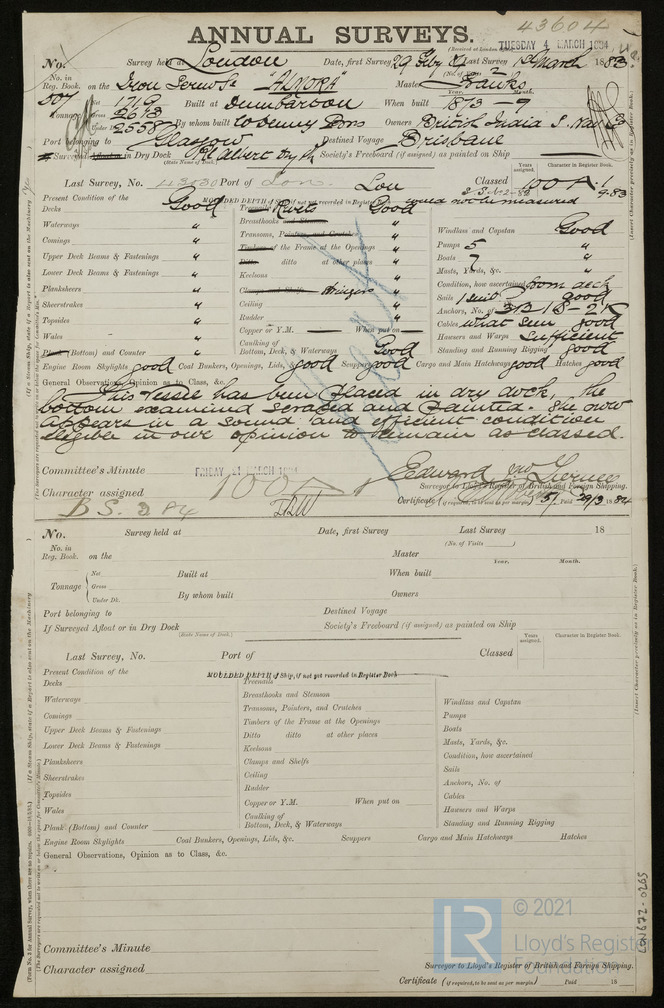 43604
ANNUAL SURVEYS.
(Received at London
TUESDAY 4 MARCH 1884
No. Survey held at London Date, first Survey 29 Feby 84 Last Survey 1st March 1883
No. in Reg. Book. on the Iron Screw Sr "ALMORA" (No. of Visits 2) Master Franks
507
Tonnage Net 1719 Built at Dumbarton When built 1873 - 9 Year. Month.
Gross 2613
Under Dk. 2558 By whom built W Denny Bros Owners British India S. Nav. Co
Port belonging to Glasgow Destined Voyage Brisbane
If Surveyed Afloat or in Dry Dock Rl Albert Dry Dk Society's Freeboard (if assigned) as painted on Ship
(State Name of Dock.)
Years assigned. Character in Register Book.
Last Survey, No. 43430 Port of Lon. Lon Classed 100 A1
4.83
Present Condition of the Good MOULDED DEPTH of Ship, if not yet recorded in Register Book could not be measured
Decks " Treenails Rivets Good
Waterways " Breasthooks and Stemson "
Comings " Transoms, Pointers, and Crutches " Windlass and Capstan Good
Upper Deck Beams & Fastenings " Timbers of the Frame at the Openings " Pumps 5 "
Lower Deck Beams & Fastenings " Ditto ditto at other places " Boats 7 "
Plankshears " Keelsons " Masts, Yards, &c. "
Sheerstrakes " Clamps and Shelfs Stringers " Condition, how ascertained from deck
Topsides " Ceiling " Sails 1 suit good
Wales " Rudder " Anchors, No. of 3B 1S - 2K
Plank (Bottom) and Counter " Copper or Y.M. When put on Cables what seen good
Caulking of Bottom, Deck, & Waterways Good Hawsers and Warps sufficient
Standing and Running Rigging good
Engine Room Skylights good Coal Bunkers, Openings, Lids, &c. good Scuppers good Cargo and Main Hatchways good Hatches good
General Observations, Opinion as to Class, &c.
This vessel has been placed in dry dock, the
bottom examined scraped and painted. She now
appears in a sound and efficient condition
eligible in our opinion to remain as classed.
Committee's Minute FRIDAY 21 MARCH 1884
Character assigned 100 A1
B S. 2 84
Surveyor to Lloyd's Register of British and Foreign Shipping.
Certificate (if required, to be sent as per margin) 5/ Paid 29/3 1884
No. Survey held at Date, first Survey Last Survey 18
(No. of Visits )
No. in Reg. Book. on the Master
Year. Month.
Tonnage Net Built at When built
Gross
Under Dk. By whom built Owners
Port belonging to Destined Voyage
If Surveyed Afloat or in Dry Dock Society's Freeboard (if assigned) as painted on Ship
(State Name of Dock.)
Years assigned. Character in Register Book.
Last Survey, No. Port of Classed
Present Condition of the MOULDED DEPTH of Ship, if not yet recorded in Register Book
Decks Treenails
Waterways Breasthooks and Stemson Windlass and Capstan
Comings Transoms, Pointers, and Crutches Pumps
Upper Deck Beams & Fastenings Timbers of the Frame at the Openings Boats
Lower Deck Beams & Fastenings Ditto ditto at other places Masts, Yards, &c.
Plankshears Keelsons Condition, how ascertained
Sheerstrakes Clamps and Shelfs Sails
Topsides Ceiling Anchors, No. of
Wales Rudder Cables
Plank (Bottom) and Counter Copper or Y.M. When put on Hawsers and Warps
Caulking of Bottom, Deck, & Waterways Standing and Running Rigging
Engine Room Skylights Coal Bunkers, Openings, Lids, &c. Scuppers Cargo and Main Hatchways Hatches
General Observations, Opinion as to Class, &c.
Committee's Minute
Character assigned
Surveyor to Lloyd's Register of British and Foreign Shipping.
Certificate (if required, to be sent as per margin) Paid 18
LON672-0265
LR
© 2021
Lloyd's Register
Foundation